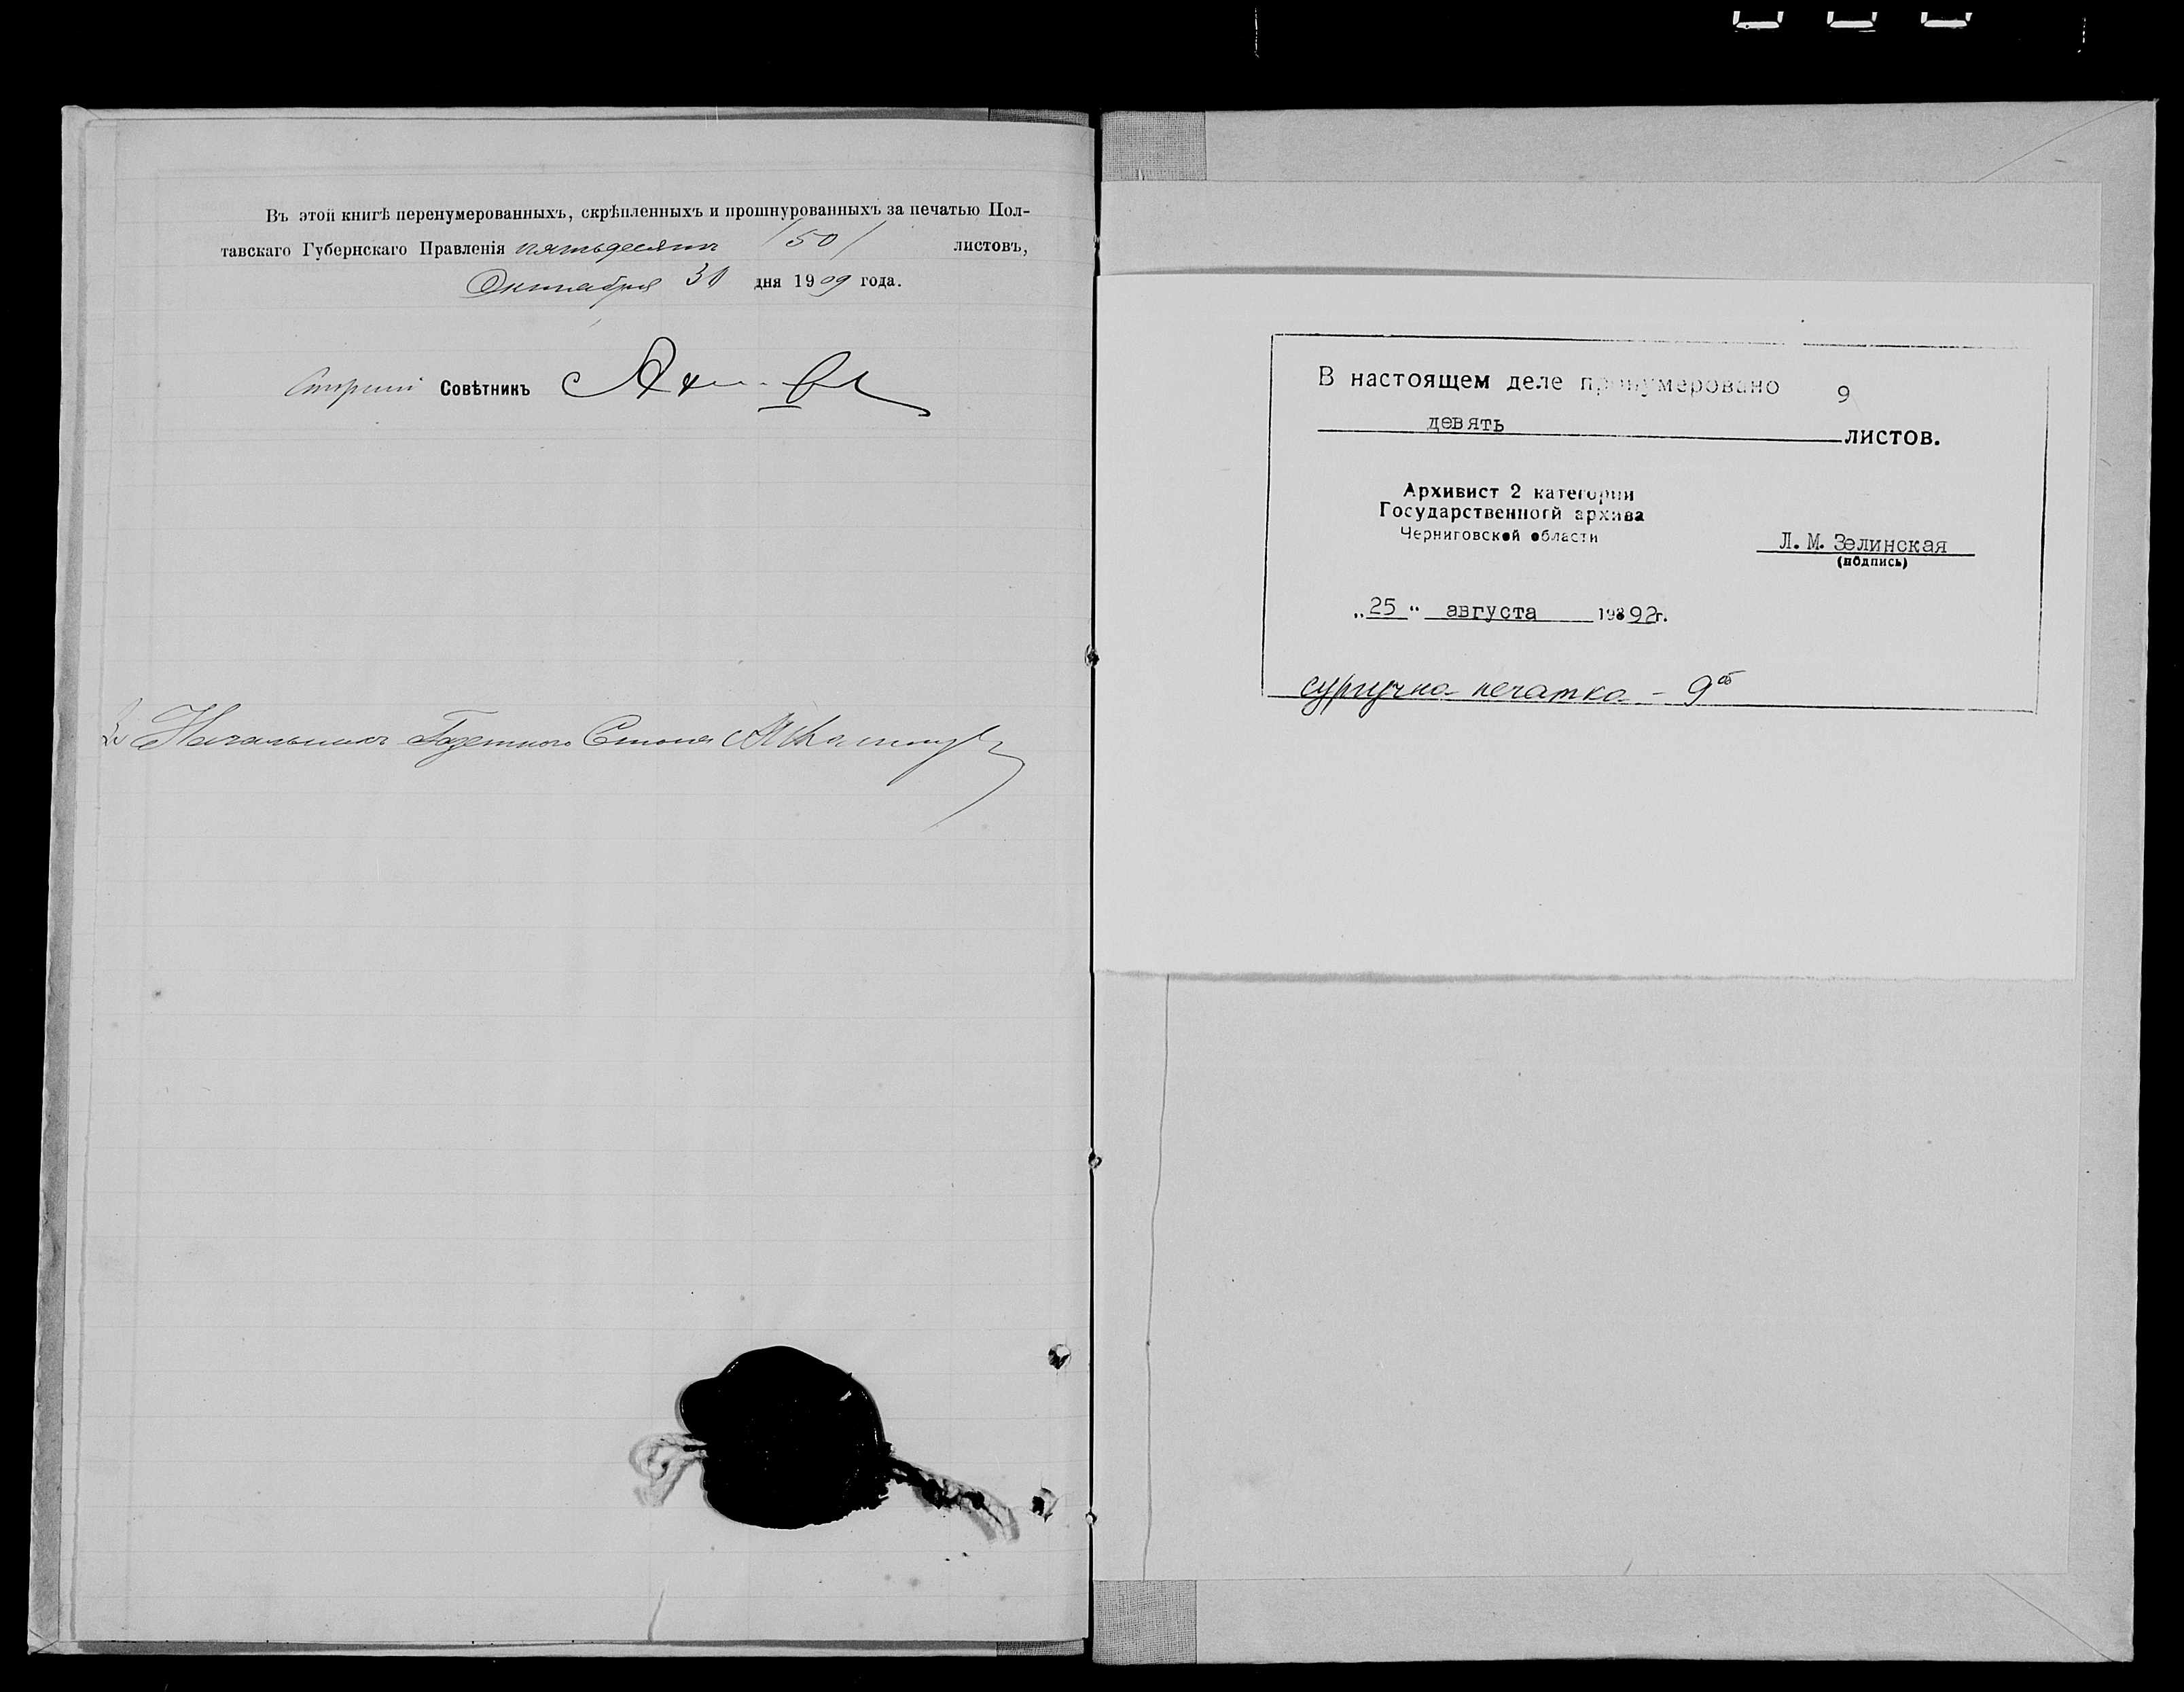 Въ этой книгѣ перенумерованныхъ, скрѣпленныхъ и прошнурованныхъ за печатью Пол-
тавскаго Губернскаго Правленія пятьдесятъ /50/ листовъ,
Октября 30 дня 1909 года.
Старшій Совѣтникъ
За Начальника Газетнаго Стола
В настоящем деле пронумеровано 9
девять листов.
Архивист 2 категории
Государственногй архива
Черниговской области
Л. М. Зелинская
(подпись)
„25“ августа 19892г.
сургучна печатка - 9об